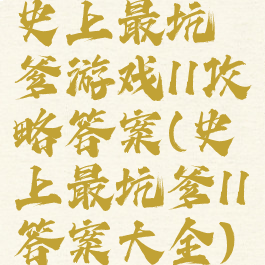 史上最坑
爹游戏11攻
略答案(史
上最坑爹11
答案大全)